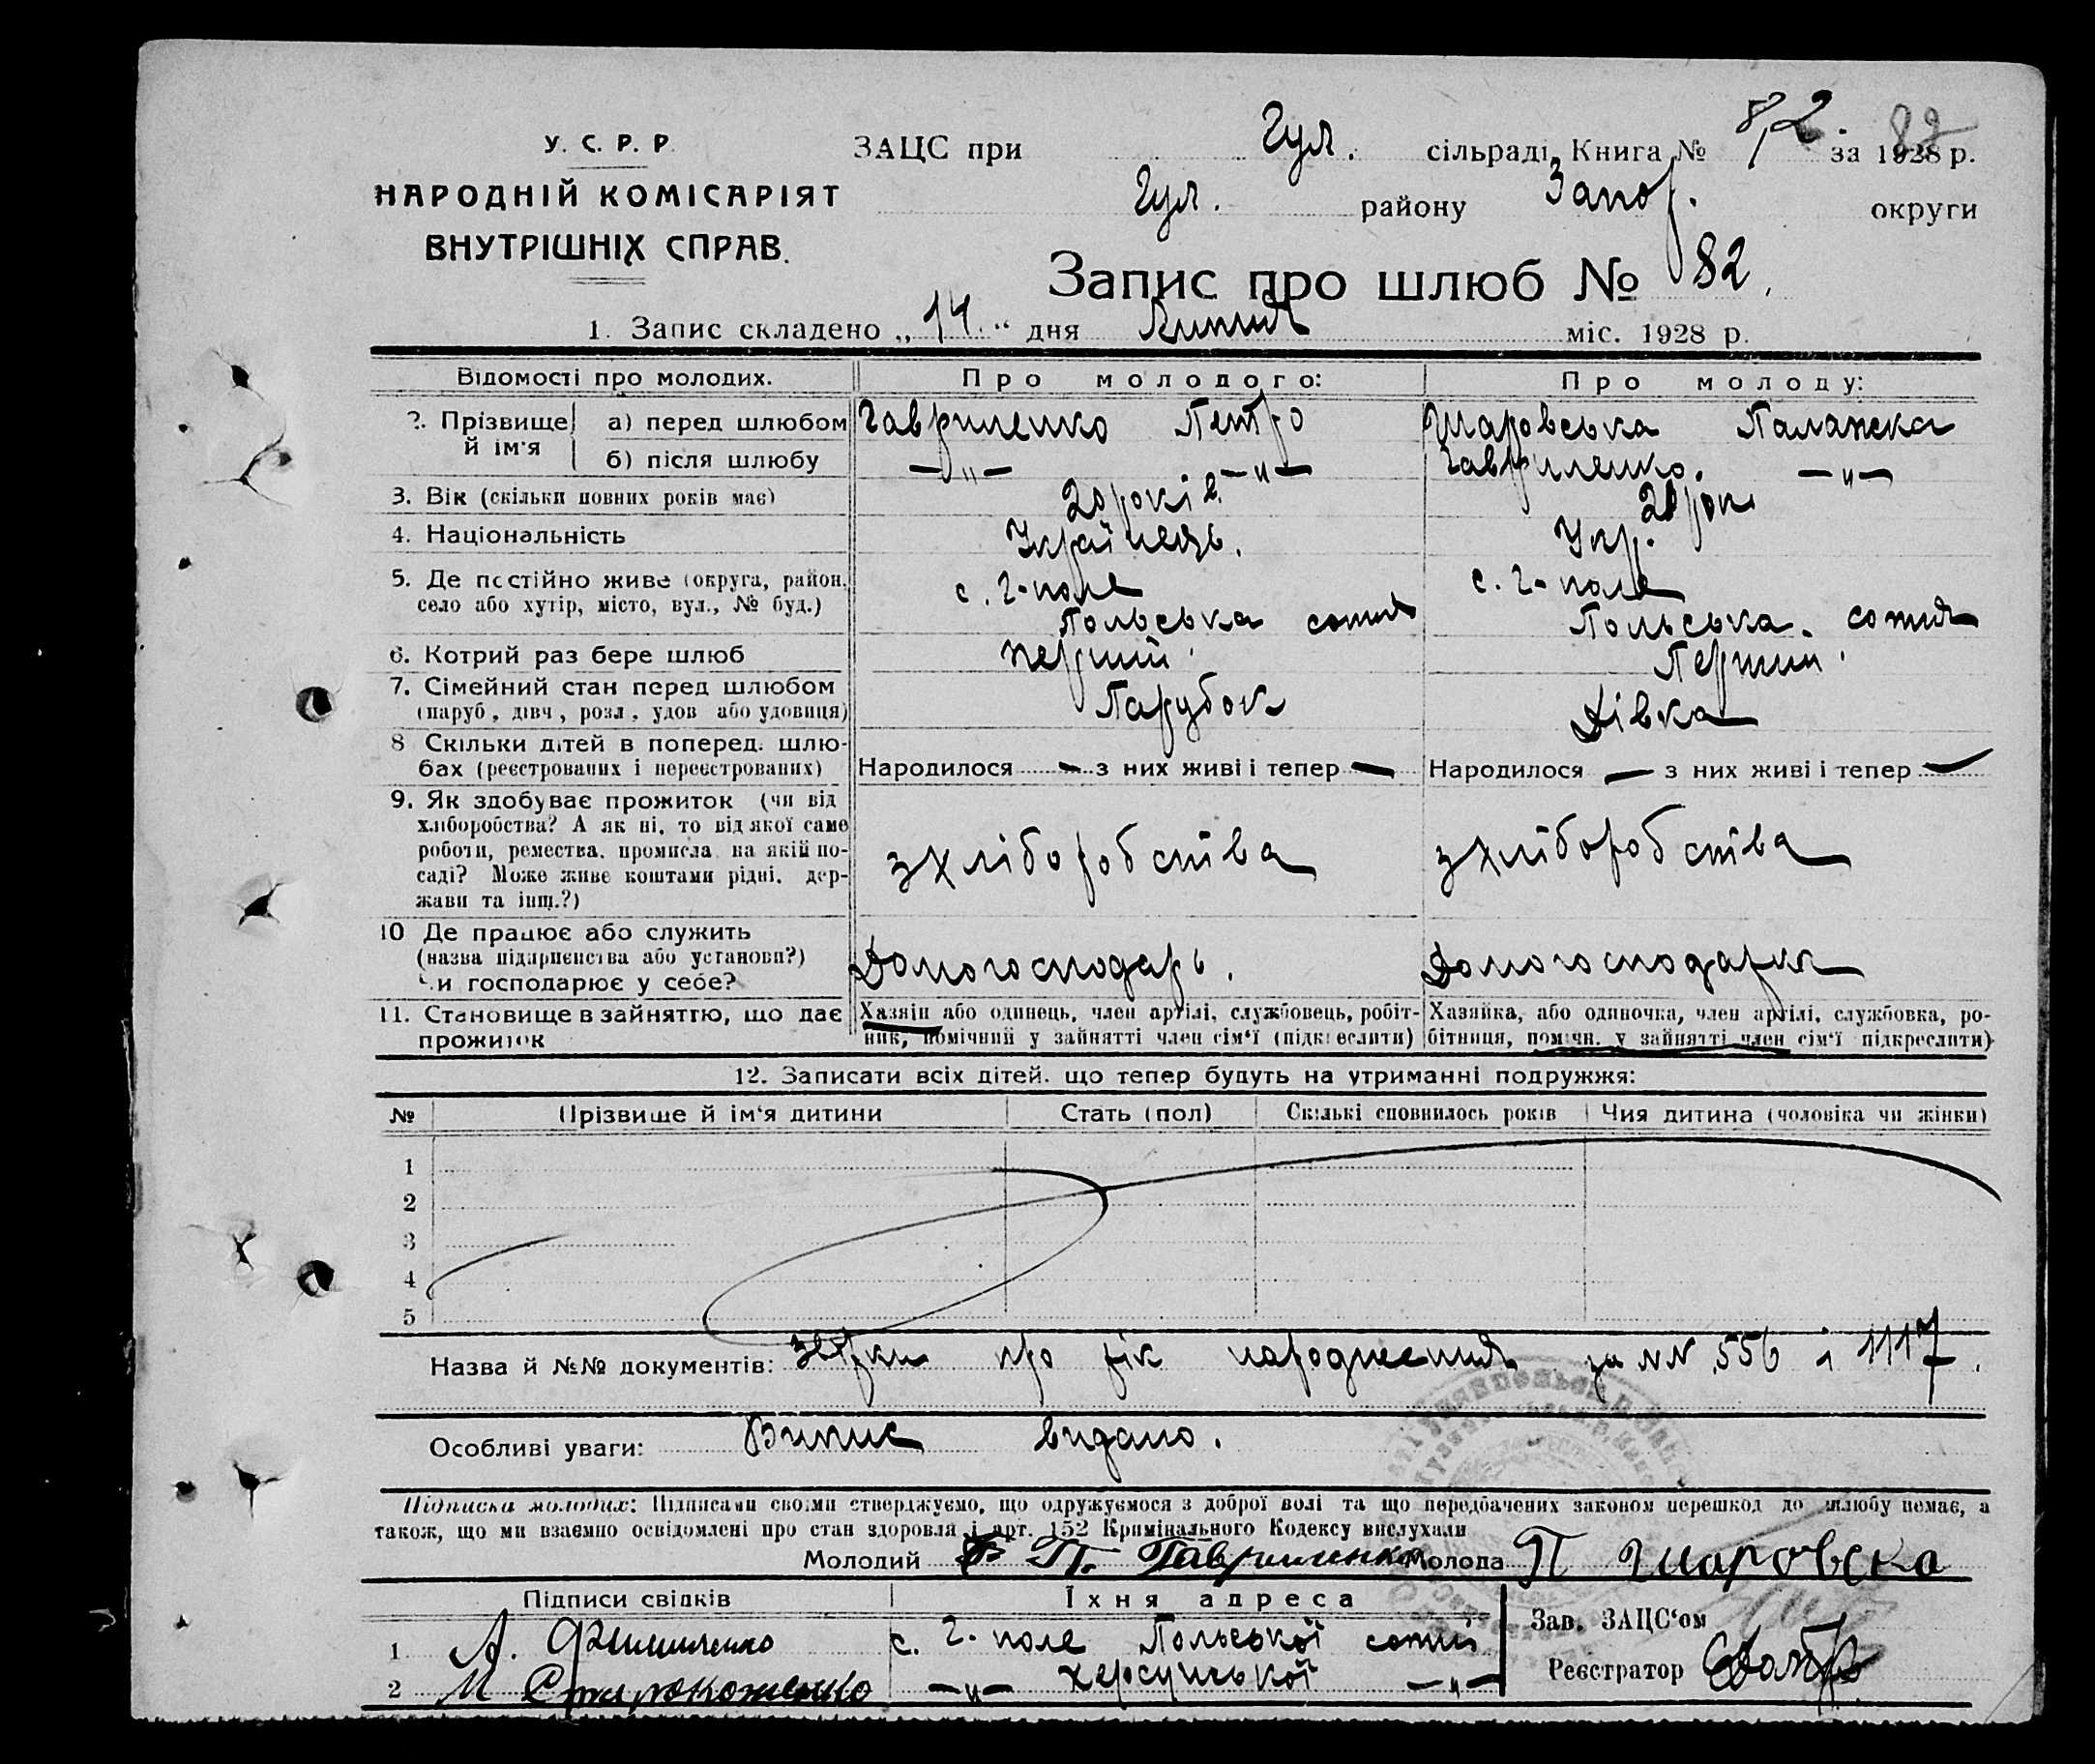 У. С. Р. Р.
НАРОДНІЙ КОМІСАРІЯТ
ВНУТРІШНІХ СПРАВ.
ЗАЦС при Гул. сільраді, Книга № 82. за 1928 р. 82
Гул. району Запор. округи
Запис про шлюб № 82.
1. Запис складено „14" дня Липня міс. 1928 р.
Відомості про молодих. Про молодого: Про молоду:
2. Прізвище й ім'я а) перед шлюбом Гавриленко Петро Паланжска
б) після шлюбу —„— —„— Гавриленко. —„—
3. Вік (скільки повних років має) 20 років. рок
4. Національність Українець. Укр.
5. Де постійно живе (округа, район, с. Г-поле с. Г-поле
село або хутір, місто, вул., № буд.) Польська сотня Польська. сотня
6. Котрий раз бере шлюб перший. Перший.
7. Сімейний стан перед шлюбом
(паруб., дівч., розл., удов або удовиця) Парубок Дівка
8 Скільки дітей в поперед. шлю-
бах (реєстрованих і нереєстрованих) Народилося — з них живі і тепер — Народилося — з них живі і тепер —
9. Як здобуває прожиток (чи від
хліборобства? А як ні, то від якої саме
роботи, ремества, промисла, на якій по-
саді? Може живе коштами рідні, дер-
жави та інш.?) з хліборобства з хліборобства
10 Де працює або служить
(назва підприємства або установи?)
Чи господарює у себе? Домогосподарь. Домогосподарка
11. Становище в зайняттю, що дає
прожиток
Хазяїн або одинець, член артілі, службовець, робіт-
ник, помічний у зайнятті член сім'ї (підкреслити)
Хазяйка, або одиночка, член артілі, службовка, ро-
бітниця, поміжн. у зайнятті член сім'ї підкреслити)
12. Записати всіх дітей, що тепер будуть на утриманні подружжя:
№ Прізвище й ім'я дитини Стать (пол) Скількі сповнилось років Чия дитина (чоловіка чи жінки)
1
2
3
4
5
Назва й №№ документів: про рік народження за NN 556 і 1117.
Особливі уваги: Випис видано.
Підписка молодих: Підписами своїми стверджуємо, що одружуємося з доброї волі та що передбачених законом перешкод до шлюбу немає, а
також, що ми взаємно освідомлені про стан здоровля і арт. 152 Кримінального Кодексу вислухали
Молодий П. Гавриленко Молода П
Підписи свідків Їхня адреса
1 А. с. Г-поле Польської сотні
2 М —„— херсунської —„—
Зав. ЗАЦС'ом
Реєстратор